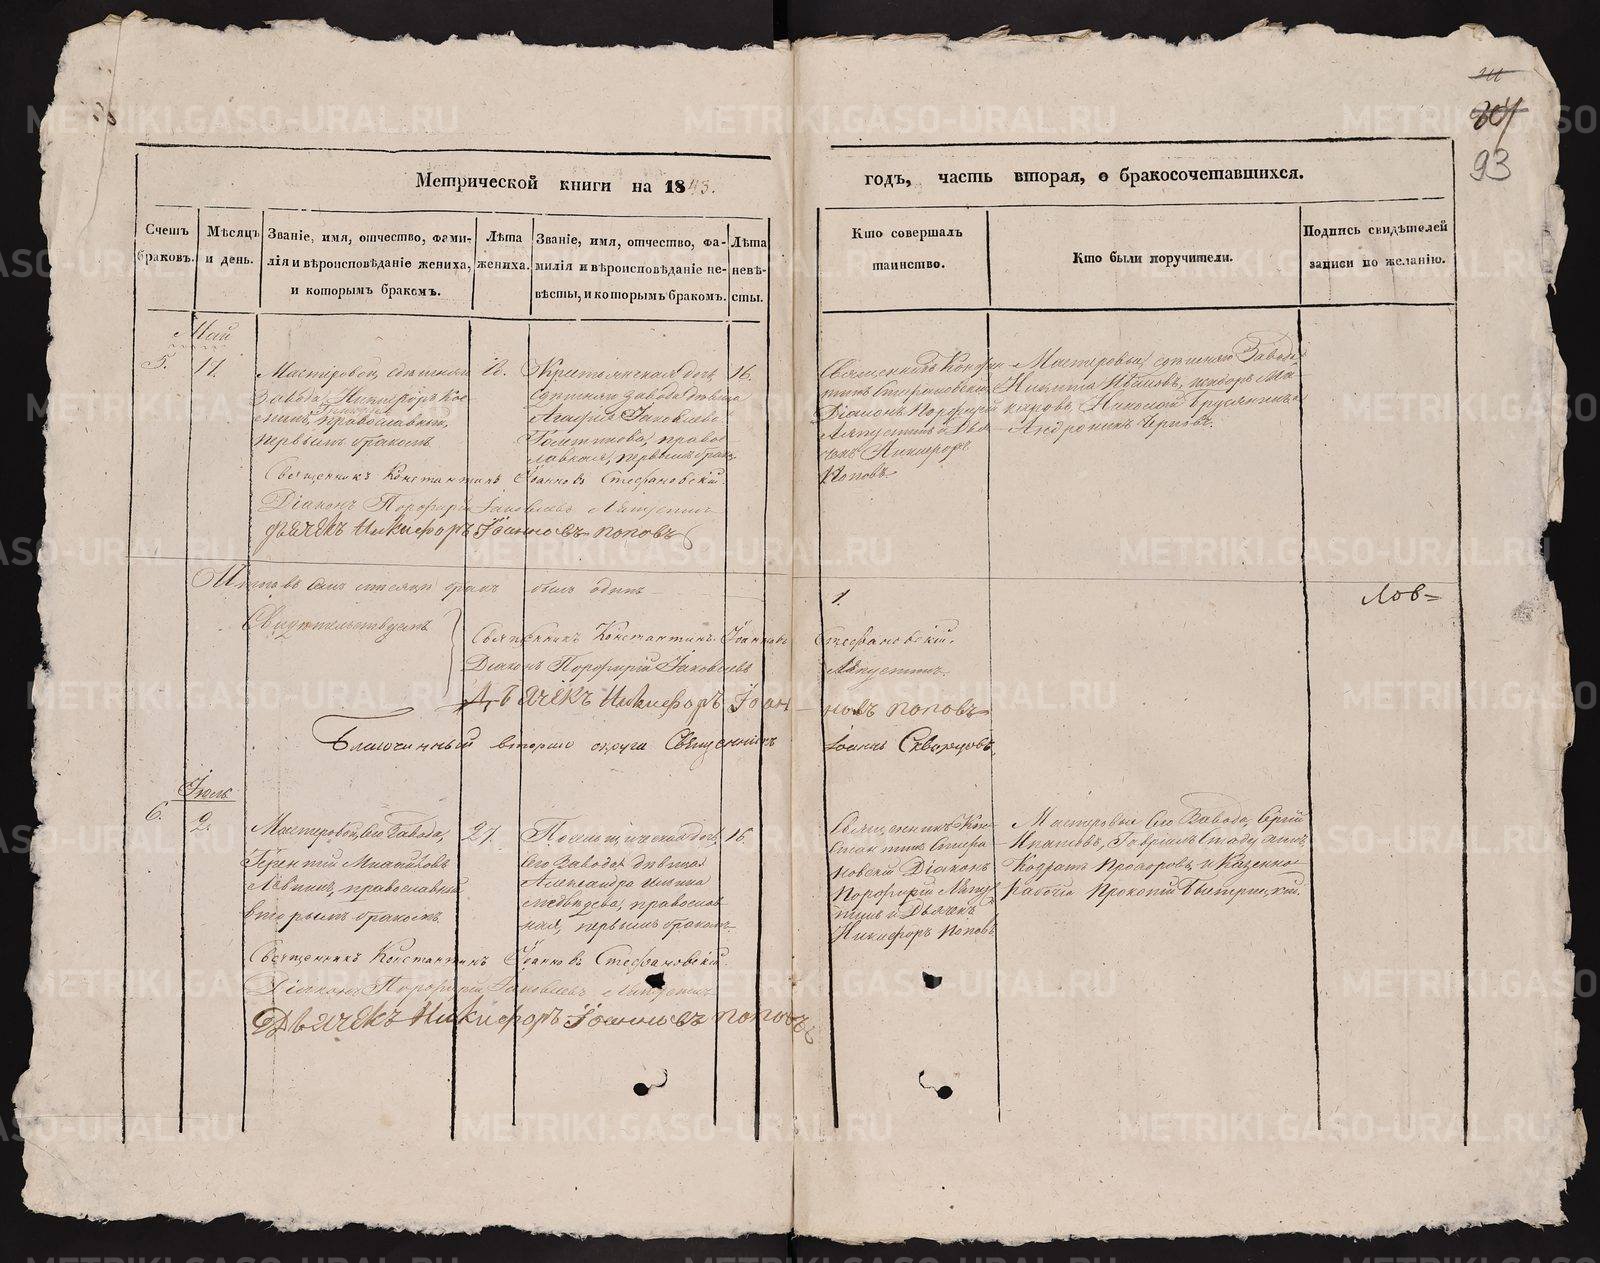 93
Метрической книги на 1843.
годъ, часть вторая, о бракосочетавшихся.
Счетъ браковъ.
Мѣсяцъ и день.
Званіе, имя, отчество, фами-
лія и вѣроисповѣданіе жениха,
и которымъ бракомъ.
Лѣта
жениха.
Званіе, имя, отчество, фа-
милія и вѣроисповѣданіе не-
вѣсты, и которымъ бракомъ.
Лѣта
невѣ-
сты.
Кто совершалъ
таинство.
Кто были поручители.
Подпись свидѣтелей
записи по желанію.
Май
5. 17.
Мастеровой
завода Никифоръ
православный,
первымъ бракомъ
18.
Завода дѣвица
Агафія Іаковлева
право-
славная, первымъ брак.
16.
Священникъ Констан-
тинъ Стефановскій
Діаконъ Порфирій
Ляпустинъ и Дья-
чекъ Никифоръ
Поповъ.
Мастеровые Завода
Никита Ивановъ, Ма-
каровъ, Николай
Андроникъ
Священникъ Константинъ Іоанновъ Стефановскій.
Діаконъ Порфирій Іаковлевъ Ляпустинъ
Дьячекъ Никифоръ Іоанновъ Поповъ
Итого въ Маѣ мѣсяцѣ бракъ былъ одинъ 1.
Лов=
Свидѣтельствуемъ
Священникъ Константинъ Іоанновъ Стефановскій.
Діаконъ Порфирій Іаковлевъ Ляпустинъ.
Дьячекъ Никифоръ Іоанновъ Поповъ
Благочинный втораго округа Священникъ Іоаннъ Скворцовъ
Іюль
6. 2.
Мастеровой, Сего Завода,
Терентій Михайловъ
Лѣвинъ, православный
вторымъ бракомъ.
27.
дочь,
Сего Завода дѣвица
Александра Ильина
Медвѣдева, православ-
ная, первымъ бракомъ
16.
Священникъ Кон-
стантинъ Стефа-
новскій Діаконъ
Порфирій Ляпу-
стинъ и Дьячекъ
Никифоръ Поповъ
Мастеровые Сего Завода, Сергій
Ипатовъ, Гавріилъ
Кодратъ Прозоровъ, и Казенно
рабочій Прокопій
Священникъ Константинъ Іоанновъ Стефановскій.
Діаконъ Порфирій Іаковлевъ Ляпустинъ
Дьячекъ Никифоръ Іоанновъ Поповъ
METRIKI.GASO-URAL.RU